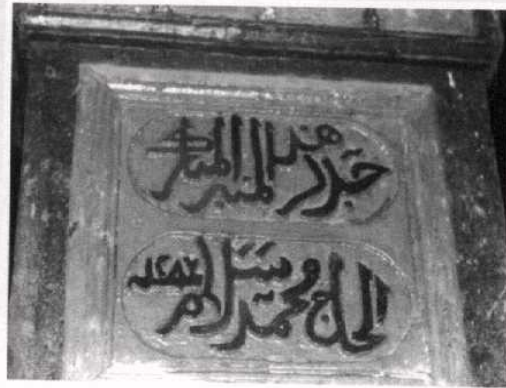 جدد هذا المنبر المبارك
الحاج محمد سلام